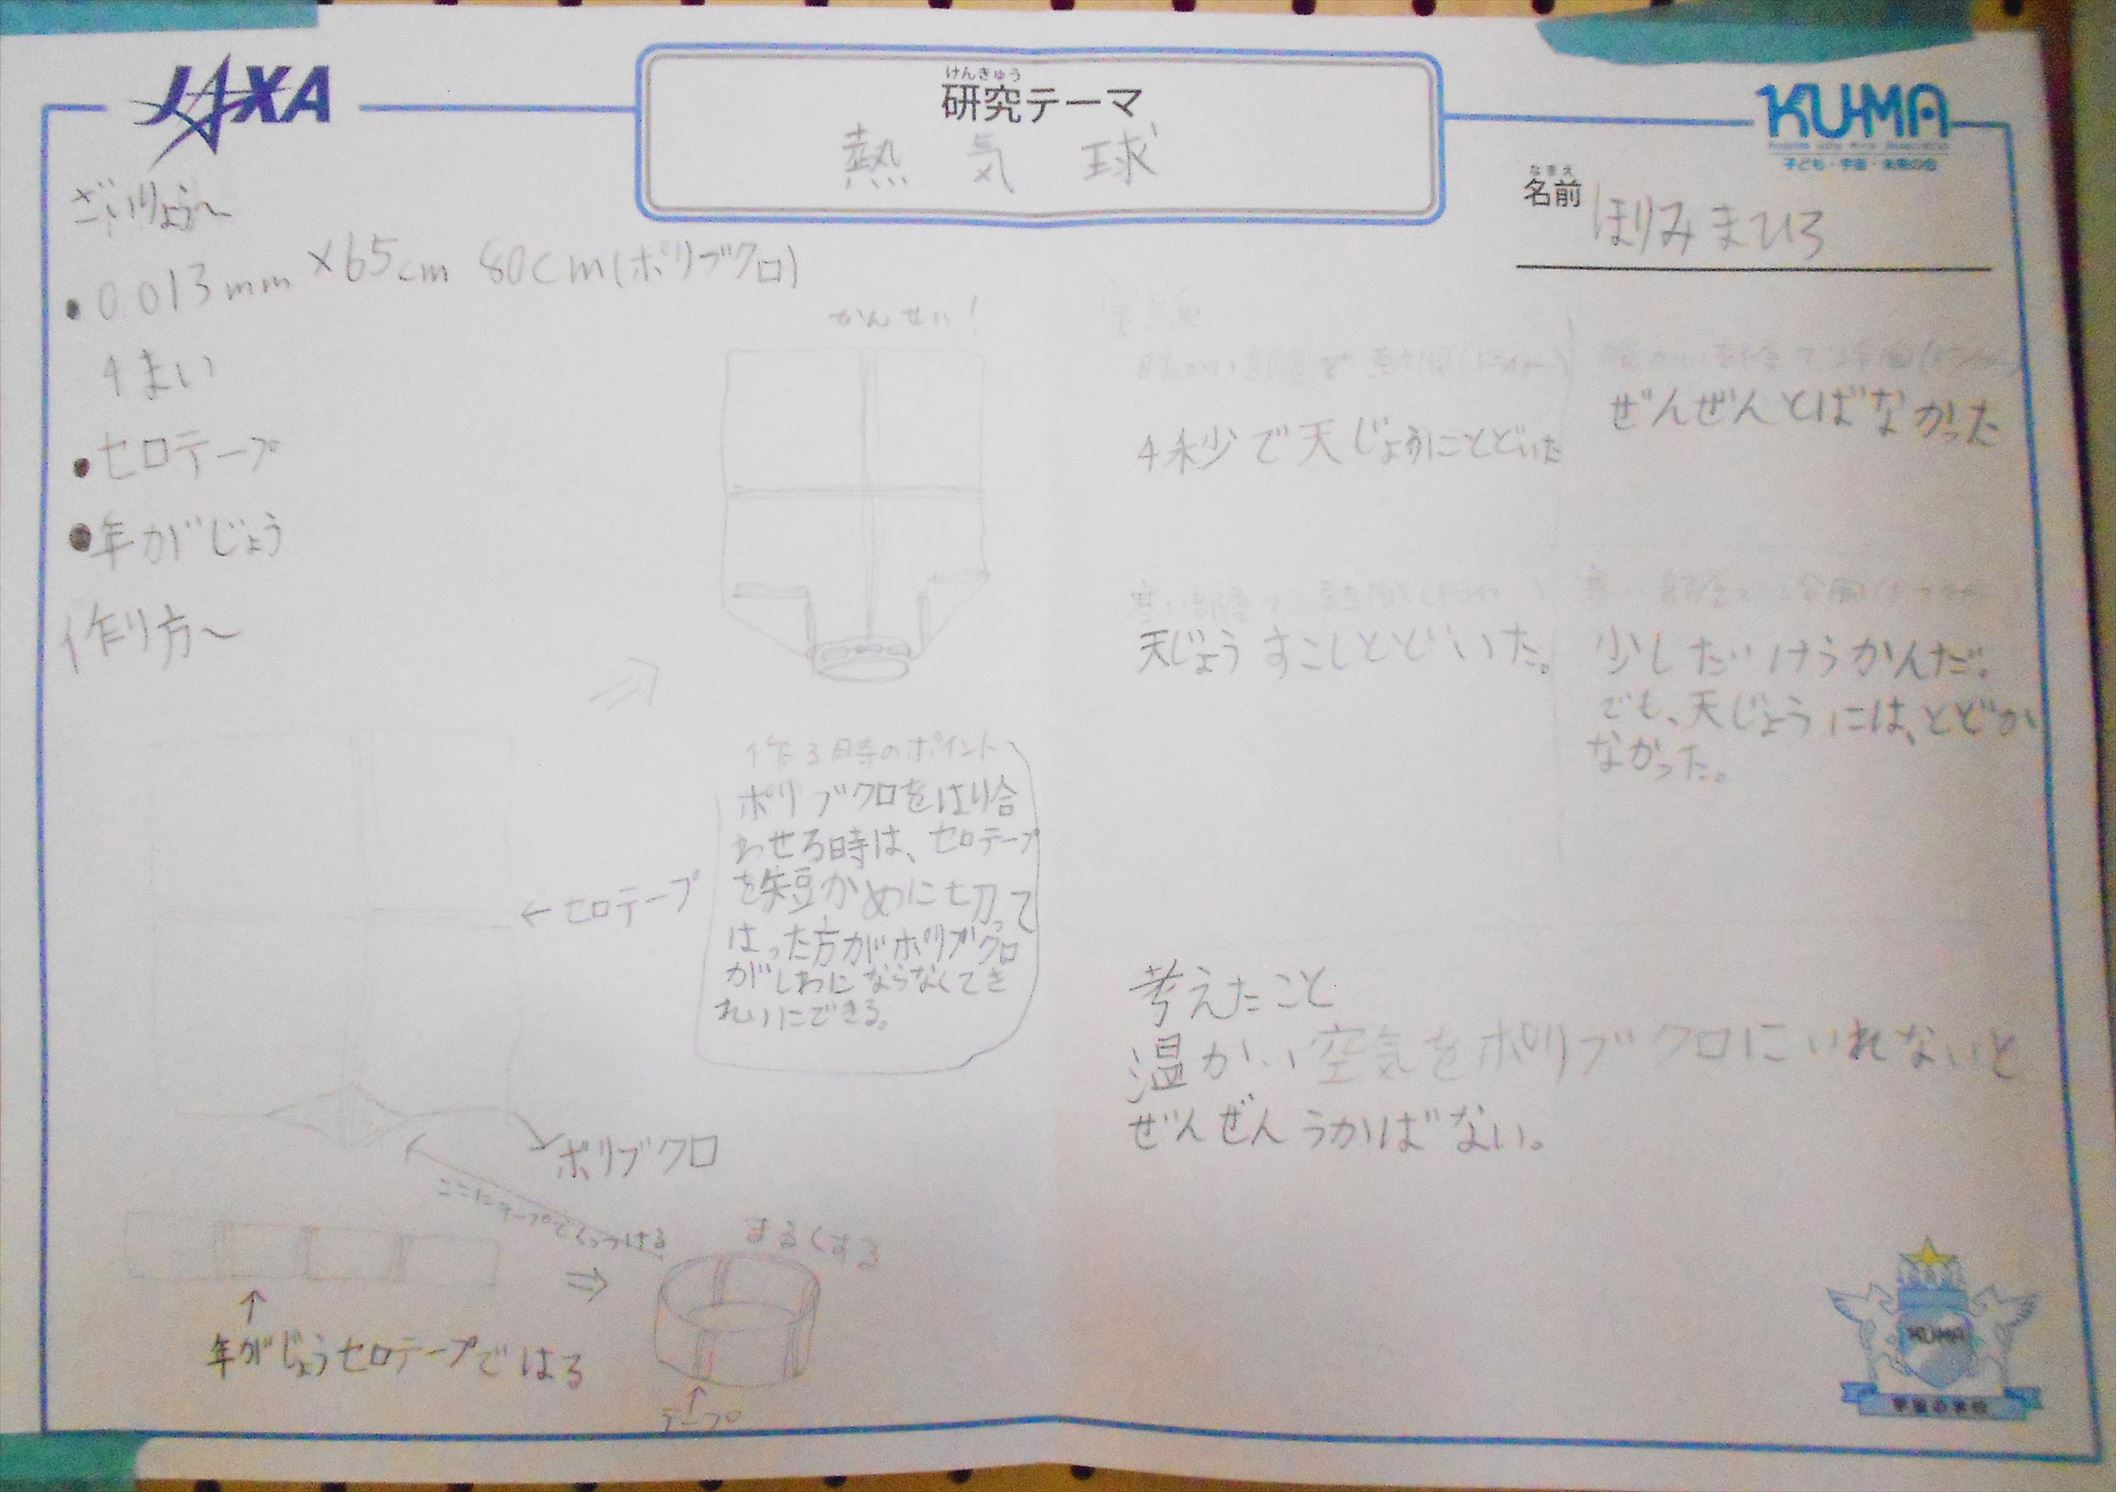 JAXA
けんきゅう
研究テーマ
熱気球
KU-MA
子ども・宇宙・未来の会
なまえ
名前
ほりみまひろ
ざいりょう〜
・0.013mm×65cm 80cm(ポリブクロ)
4まい
・セロテープ
・年がじょう
作り方〜
←セロテープ
ポリブクロ
ここにテープでくっつける
年がじょうセロテープではる
まるくする
テープ
かんせい!
作る時のポイント
ポリブクロをはり合
わせる時は、セロテープ
を短かめに切って
はった方がポリブクロ
がしわにならなくてき
れいにできる。
実験
暖かい部屋で熱風(ドライヤー)
4秒で天じょうにとどいた
暖かい部屋で冷風(ドライヤー)
ぜんぜんとばなかった
寒い部屋で熱風(ドライヤー)
天じょうすこしとどいた。
寒い部屋で冷風(ドライヤー)
少しだけうかんだ。
でも、天じょうには、とどか
なかった。
考えたこと
温かい空気をポリブクロにいれないと
ぜんぜんうかばない。
KU-MA
宇宙の学校